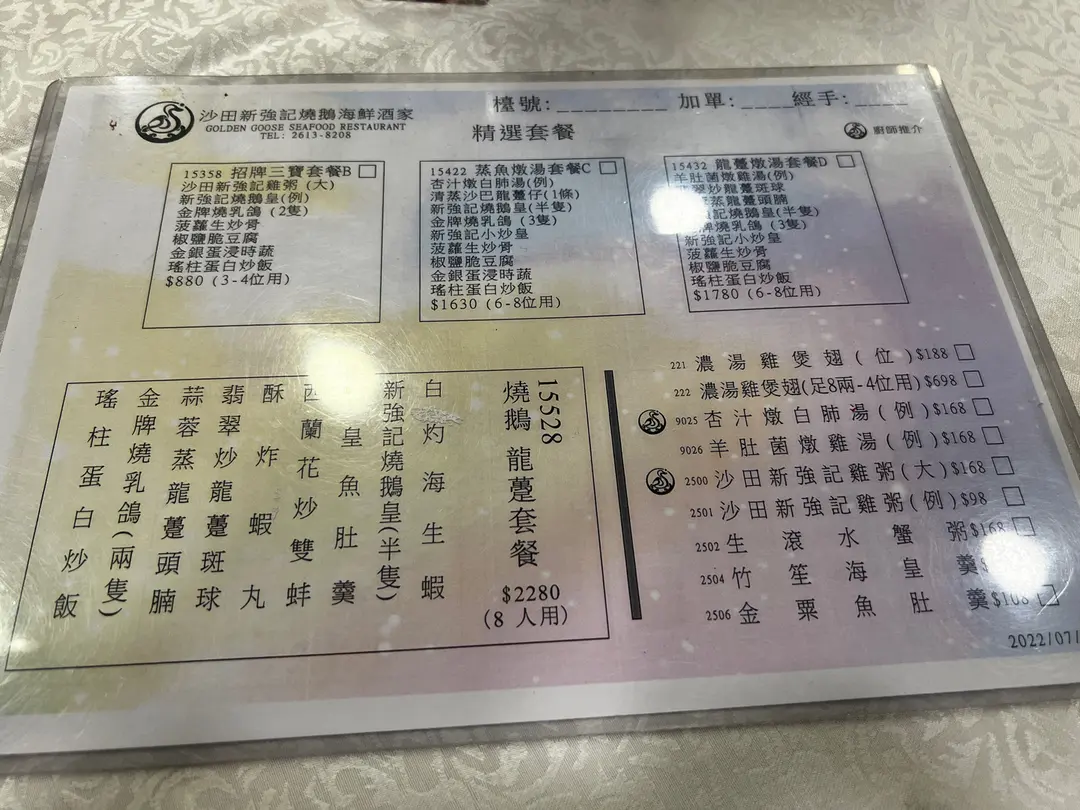 沙田新強記燒鵝海鮮酒家
GOLDEN GOOSE SEAFOOD RESTAURANT
TEL: 2613-8208
檯號:________ 加單:____ 經手:____
精選套餐
廚師推介
15358 招牌三寶套餐B
沙田新強記雞粥 (大)
新強記燒鵝皇(例)
金牌燒乳鴿 (2隻)
菠蘿生炒骨
椒鹽脆豆腐
金銀蛋浸時蔬
瑤柱蛋白炒飯
$880 (3-4位用)
15422 蒸魚燉湯套餐C
杏汁燉白肺湯(例)
清蒸沙巴龍躉仔(1條)
新強記燒鵝皇(半隻)
金牌燒乳鴿 (3隻)
新強記小炒皇
菠蘿生炒骨
椒鹽脆豆腐
金銀蛋浸時蔬
瑤柱蛋白炒飯
$1630 (6-8位用)
15432 龍躉燉湯套餐D
羊肚菌燉雞湯(例)
炒龍躉斑球
蒸龍躉頭腩
記燒鵝皇(半隻)
牌燒乳鴿 (3隻)
新強記小炒皇
菠蘿生炒骨
椒鹽脆豆腐
瑤柱蛋白炒飯
$1780 (6-8位用)
15528
燒鵝龍躉套餐
$2280
(8 人用)
白灼海生蝦
新強記燒鵝皇(半隻)
皇魚肚羹
西蘭花炒雙蚌
酥炸蝦丸
翡翠炒龍躉斑球
蒜蓉蒸龍躉頭腩
金牌燒乳鴿(兩隻)
瑤柱蛋白炒飯
221 濃湯雞煲翅(位)$188
222 濃湯雞煲翅(足8兩-4位用)$698
9025 杏汁燉白肺湯(例)$168
9026 羊肚菌燉雞湯(例)$168
2500 沙田新強記雞粥(大)$168
2501 沙田新強記雞粥(例)$98
2502 生滾水蟹粥$168
2504 竹笙海皇羹
2506 金粟魚肚羹
2022/07/